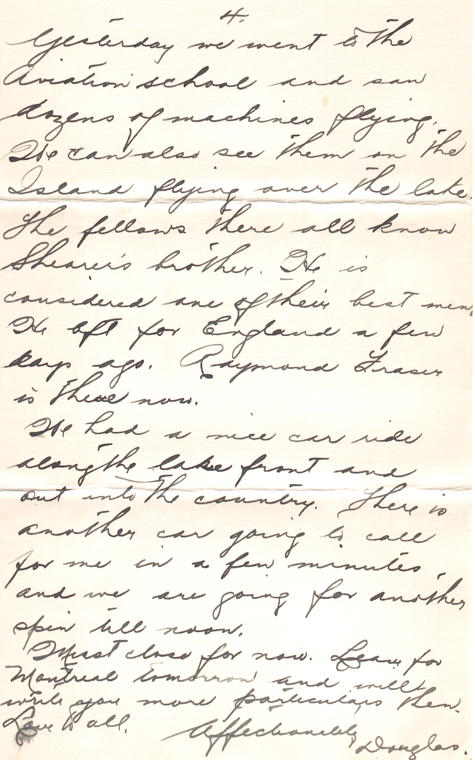 4.
Yesterday we went to the
Aviation school and saw
dozens of machines flying.
We can also see them on the
Island flying over the lake.
The fellows there all know
Shearer's brother. He is
considered one of their best men.
He left for England a few
days ago. Raymond Fraser
is there now.
We had a nice car ride
along the lake front and
out into the country. There is
another car going to call
for me in a few minutes,
and we are going for another
spin till noon.
Must close for now. Leave for
Montreal tomorrow and will
write you more particulars then.
Love to all.
Affectionately
Douglas.